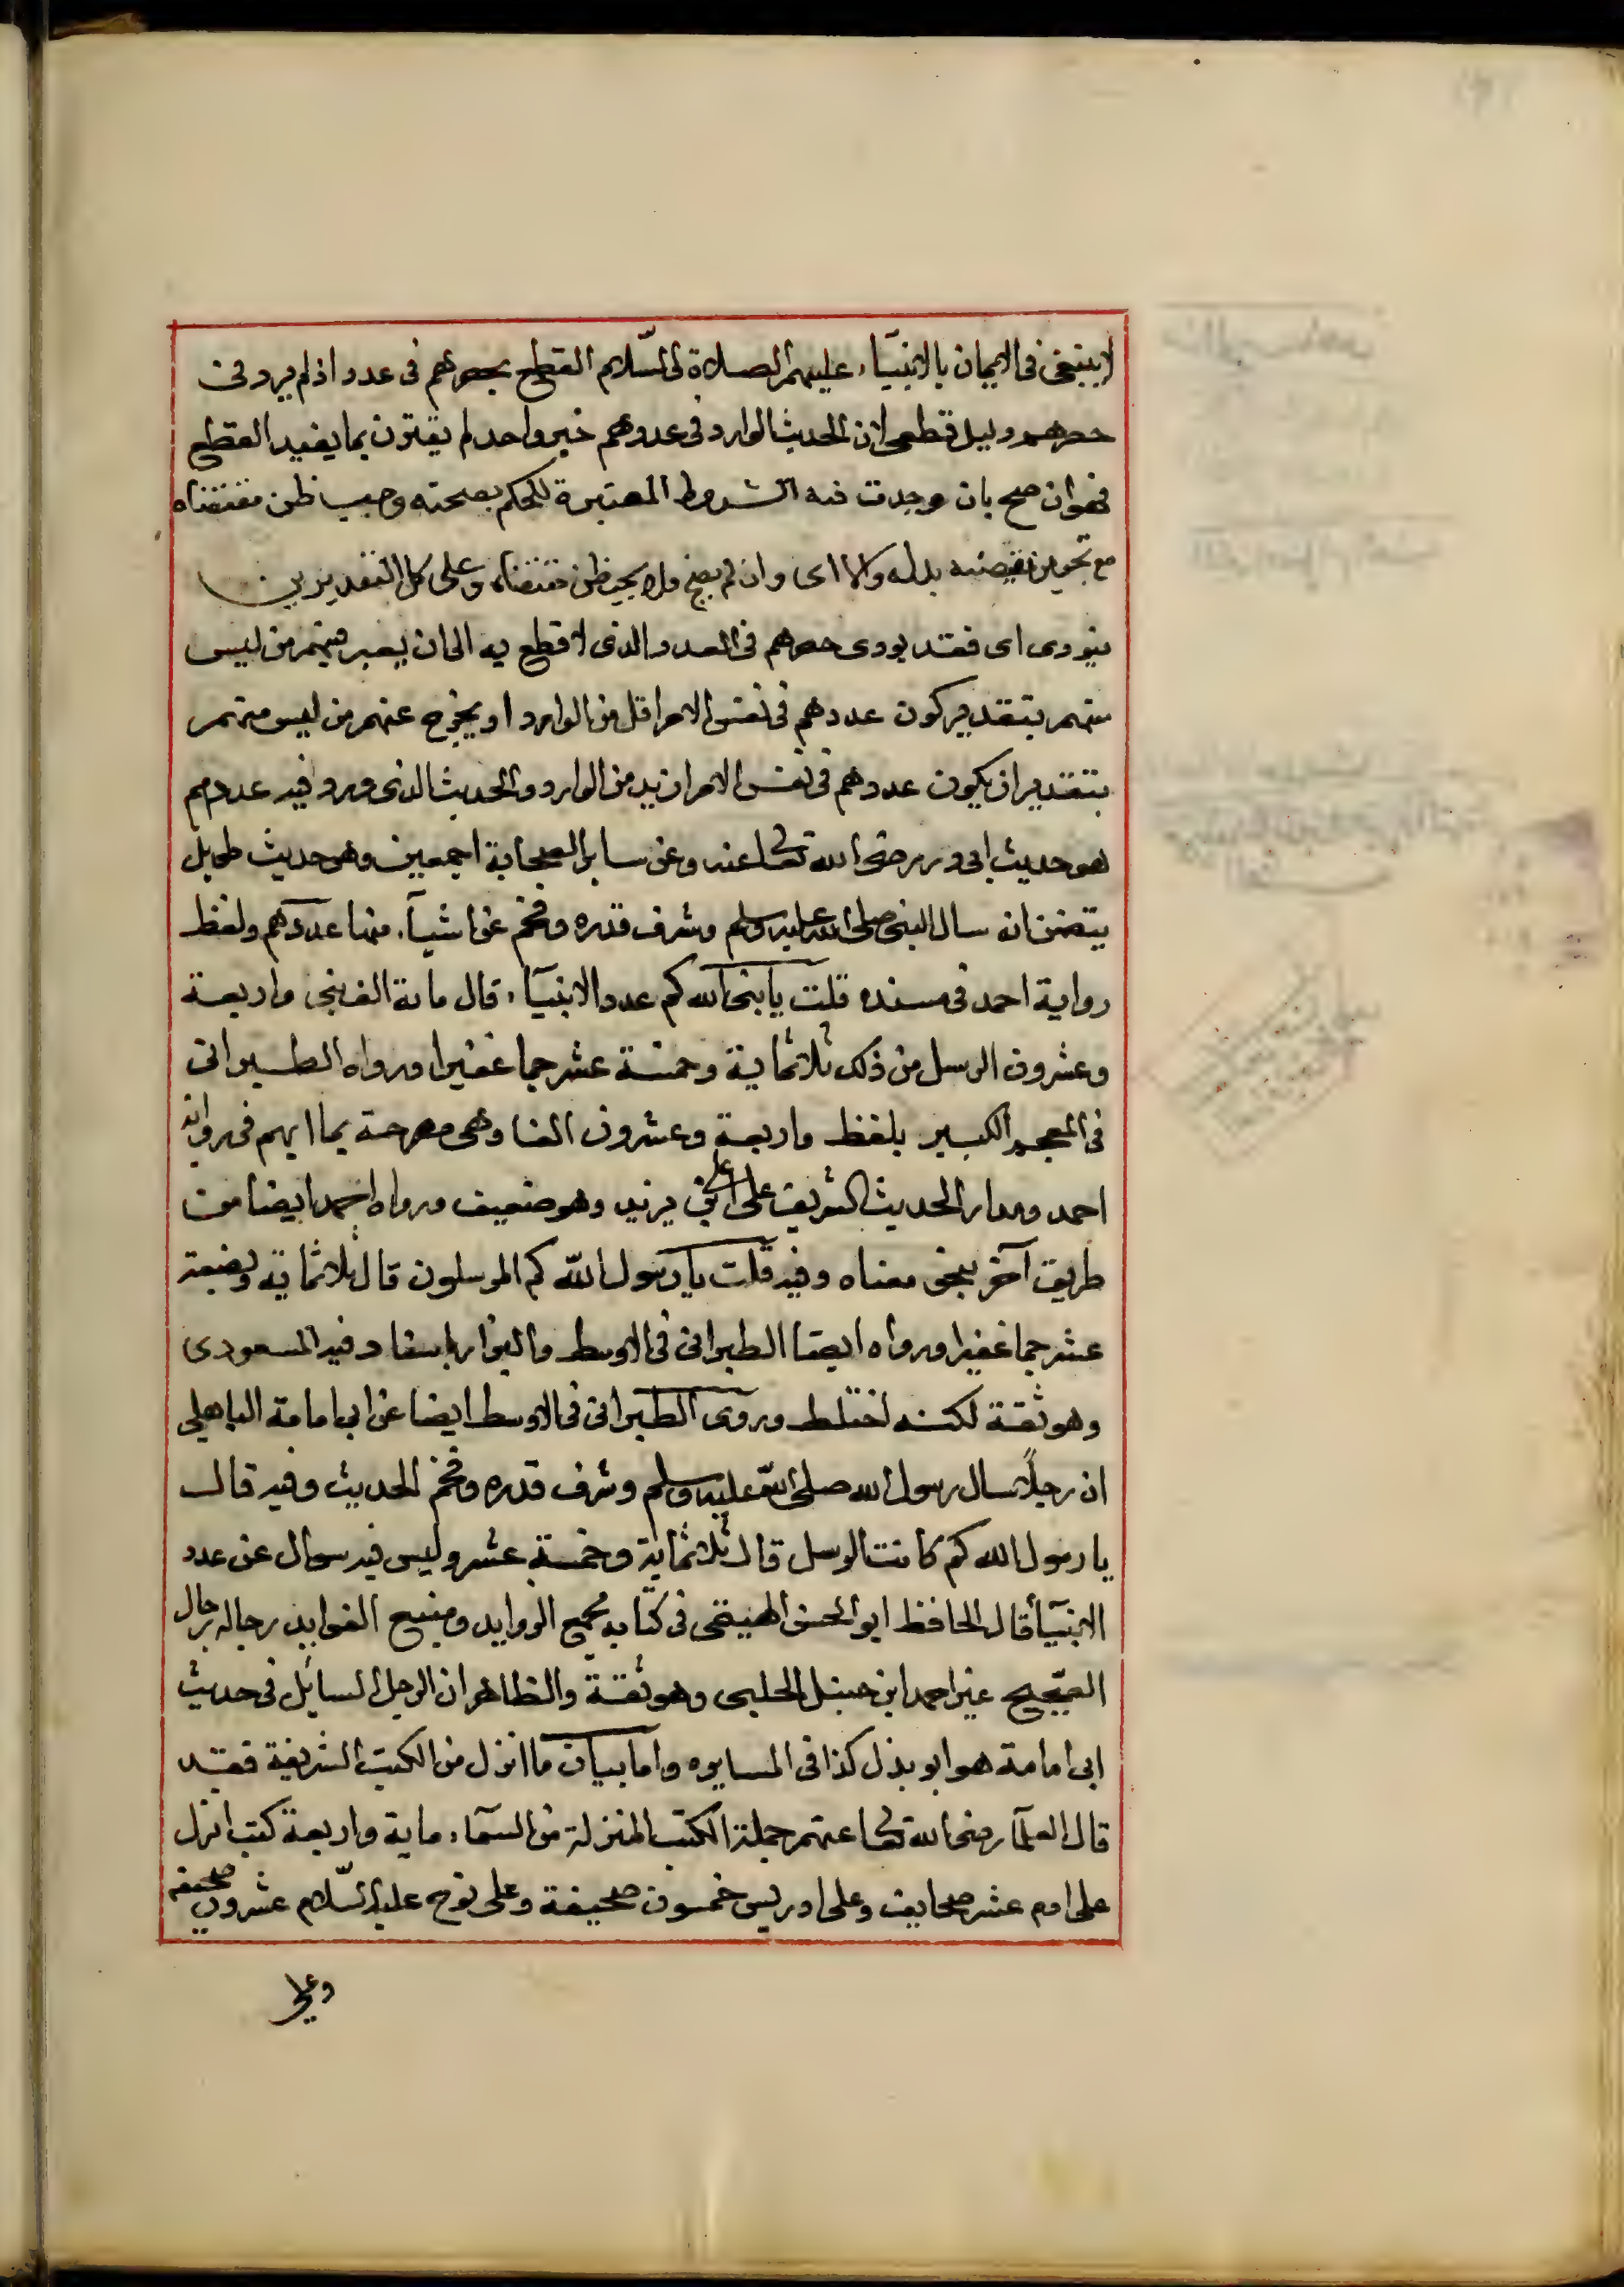 لا ينبغى فى الايمان بالانبيآء عليهم الصلاة والسّلام القطع بحصرهم فى عدد اذ لم يرد فى
حصرهم دليل قطعى لان الحديث الوارد فى عددهم خبر واحد لم يقترن بما يفيد القطع
فهوان صح بان وجدت فيه الشروط المعتبرة للحكم بصحته وجب ظن مقتضاه
مع تجويز نقيضه بدله والا اى وان لم يصح فلا يجب ظن مقتضاه وعلى كل التقديرين
فيؤدى اى فقد يودى حصرهم فى العدد الذى لا قطع به الى ان يعبر فيهم من ليس
منهم بتقدير كون عددهم فى نفس الامر اقل من الوارد او يخرج عنهم من ليس منهم
بتقدير ان يكون عددهم فى نفس الامر ازيد من الوارد والحديث الذى ورد فيه عددهم
هو حديث ابى ذر رضى الله تعالى عنه وعن ساير الصحابة اجمعين وهو حديث طويل
يتضمن انه سال النبى صلى الله عليه وسلم وشرف قدره وفخم عن اشيآء منها عددهم ولفظ
رواية احمد فى مسنده قلت يا نبى الله كم عدد الانبيآء قال ماية الف نبى واربعة
وعشرون الرسل من ذلك ثلاثماية وخمسة عشر جما غفيرا ورواه الطبرانى
فى المعجم الكبير بلفظ واربعة وعشرون الفا وهى مصرحة بما ابهم فى رواية
احمد ومدار الحديث الشريف على على بن يزيد وهو ضعيف ورواه احمد ايضا من
طريق آخر بنحو معناه وفيه قلت يا رسول اللّه كم المرسلون قال ثلاثماية وبضعة
عشر جما غفيرا ورواه ايضا الطبرانى فى الاوسط والبزار باسناد فيه المسعودى
وهو ثقة لكنه اختلط وروى الطبرانى فى الاوسط ايضا عن ابى امامة الباهلى
ان رجلاً سال رسول الله صلى اللّه عليه وسلم وشرف قدره وفخم الحديث وفيه قال
يا رسول الله كم كانت الرسل قال ثلاثماية وخمسة عشر وليس فيه سوال عن عدد
الانبيآء قال الحافظ ابو الحسن الهيثمى فى كتابه مجمع الزوايد ومنبع الفوايد رجاله رجال
الصّحيح غير احمد ابن حنبل الحلبى وهو ثقة والظاهر ان الرجل السايل فى حديث
ابى امامة هو ابو بذل كذا فى المسايره واما بيان ما انزل من الكتب الشريفة فقد
قال العلمآ رضى الله تعالى عنهم جملة الكتب المنزلة من السمآء ماية واربعة كتب انزل
على ادم عشر صحايف وعلى ادريس خمسون صحيفة وعلى نوح عليه السّلام عشرون صحيفه
وعلى